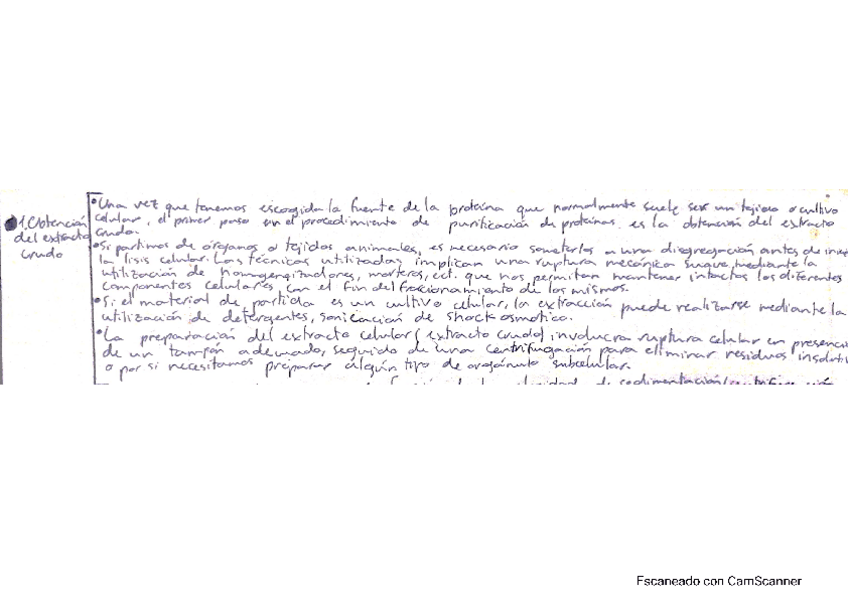 1. Obtención
del extracto
crudo
• Una vez que tenemos escogida la fuente de la proteína que normalmente suele ser un tejido o cultivo
celular, el primer paso en el procedimiento de purificación de proteínas es la obtención del extracto
crudo.
• Si partimos de órganos o tejidos animales, es necesario someterlos a una disgregación antes de
la lisis celular. Las técnicas utilizadas implican una ruptura mecánica suave, mediante la
utilización de homogenizadores, morteros, ect. que nos permitan mantener intactos los diferentes
componentes celulares, con el fin del fraccionamiento de los mismos.
• Si el material de partida es un cultivo celular, la extracción puede realizarse mediante la
utilización de detergentes, sonicación de shock osmotico.
• La preparación del extracto celular (extracto crudo) involucra ruptura celular en
de un tampón adecuado, seguido de una centrifugación para eliminar residuos
o por si necesitamos preparar algún tipo de orgánulo subcelular.
sedimentación
Escaneado con CamScanner